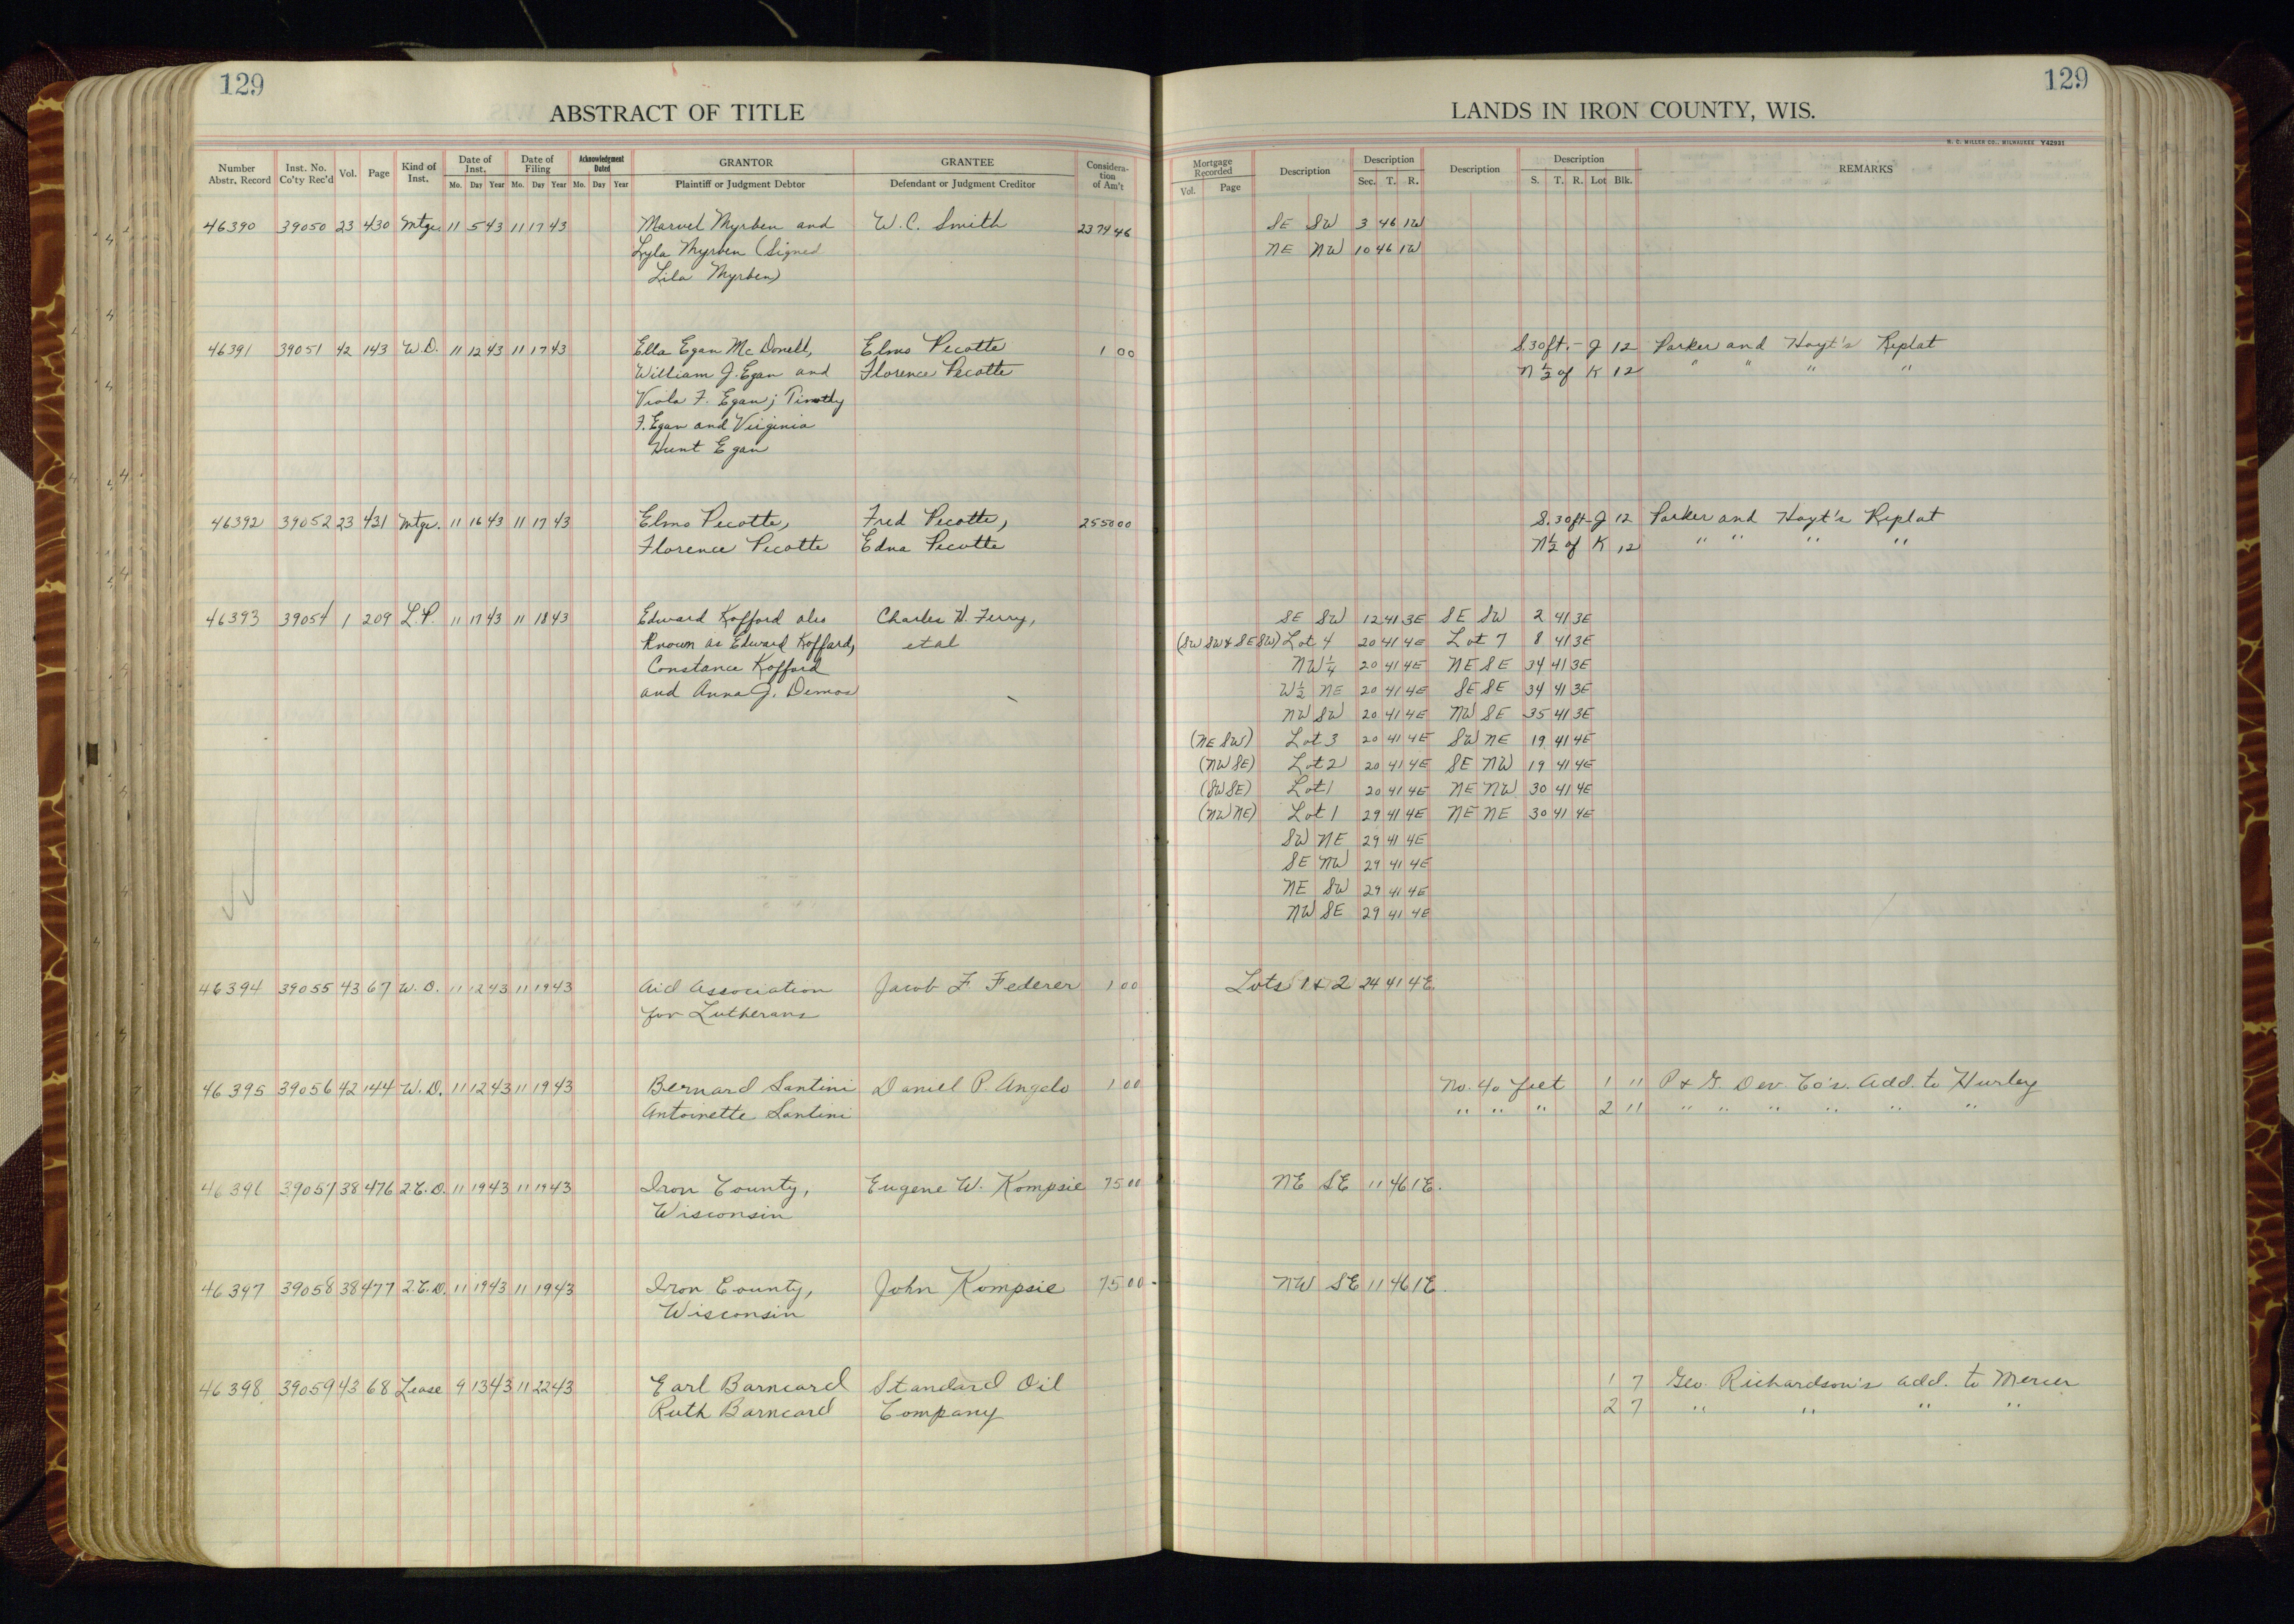 129
ABSTRACT OF TITLE
Number Abstr. Record Inst. No. Co'ty Rec'd Vol. Page Kind of Inst. Date of Inst. Mo. Day Year Date of Filing Mo. Day Year Acknowledgment Dated Mo. Day Year GRANTOR Plaintiff or Judgment Debtor GRANTEE Defendant or Judgment Creditor Consideration of Am't
46390 39050 23 430 Mtge. 11 5 43 11 17 43 Marvel Myrben and W. C. Smith 2374 46
Lyla Myrben (Signed
Lila Myrben)
46391 39051 42 143 W.D. 11 12 43 11 17 43 Ella Egan McDonell, Elmo Pecotte 1 00
William J. Egan and Florence Pecotte
Viola F. Egan; Timothy
F. Egan and Virginia
Hunt Egan
46392 39052 23 431 Mtge. 11 16 43 11 17 43 Elmo Pecotte, Fred Pecotte, 2550 00
Florence Pecotte Edna Pecotte
46393 39054 1 209 L.P. 11 17 43 11 18 43 Edward Kofford also Charles H. Ferry,
Known as Edward Koffard, et al
Constance Kofford
and Anna J. Demos
46394 39055 43 67 W.D. 11 12 43 11 19 43 Aid Association Jacob F. Federer 1 00
for Lutherans
46395 39056 42 144 W.D. 11 12 43 11 19 43 Bernard Santini Daniel P. Angelo 1 00
Antoinette Santini
46396 39057 38 476 2.C.D. 11 19 43 11 19 43 Iron County, Eugene W. Kompsie 75 00
Wisconsin
46397 39058 38 477 2.C.D. 11 19 43 11 19 43 Iron County, John Kompsie 75 00
Wisconsin
46398 39059 43 68 Lease 9 13 43 11 22 43 Earl Barncard Standard Oil
Ruth Barncard Company
129
LANDS IN IRON COUNTY, WIS.
H. C. MILLER CO., MILWAUKEE Y42931
Mortgage Recorded Vol. Page Description Description Sec. T. R. Description Description S. T. R. Lot Blk. REMARKS
SE SW 3 46 1W
NE NW 10 46 1W
S.30ft.- J 12 Parker and Hoyt's Replat
N½ of K 12 " " " "
S.30ft- J 12 Parker and Hoyt's Replat
N½ of K 12 " " " "
SE SW 12 41 3E SE SW 2 41 3E
(SW SW & SE SW) Lot 4 20 41 4E Lot 7 8 41 3E
NW¼ 20 41 4E NE SE 34 41 3E
W½ NE 20 41 4E SE SE 34 41 3E
NW SW 20 41 4E NW SE 35 41 3E
(NE SW) Lot 3 20 41 4E SW NE 19 41 4E
(NW SE) Lot 2 20 41 4E SE NW 19 41 4E
(SW SE) Lot 1 20 41 4E NE NW 30 41 4E
(NW NE) Lot 1 29 41 4E NE NE 30 41 4E
SW NE 29 41 4E
SE NW 29 41 4E
NE SW 29 41 4E
NW SE 29 41 4E
Lots 1 & 2 24 41 4E.
No. 40 feet 1 11 P & G. Dev. Co's. Add. to Hurley
" " " 2 11 " " " " " "
NE SE 11 46 1E.
NW SE 11 46 1E.
1 7 Geo. Richardson's add. to Mercer
2 7 " " " "